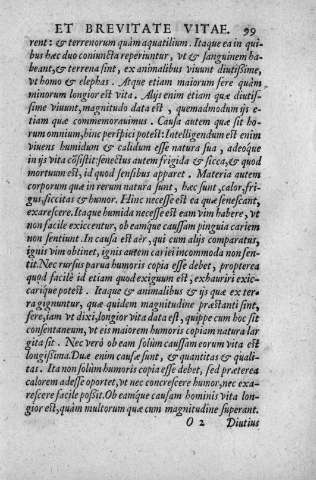 ET BREVITATE VITAE. 99
rent: & terrenorum quàm aquatilium. Itaque ea in qui-
bus hæc duo coniuncta reperiuntur, vt & sanguinem ha-
beant, & terrena sint, ex animalibus viuunt diutissime,
vt homo & elephas. Atque etiam maiorum fere quàm
minorum longior est vita. Alijs enim etiam quæ diutis-
sime viuunt, magnitudo data est, quemadmodum ijs e-
tiam quæ commemorauimus. Causa autem quæ sit ho-
rum omnium, hinc perspici potest: Intelligendum est enim
viuens humidum & calidum esse natura sua, adeoque
in ijs vita cõsistit: senectus autem frigida & sicca, & quod
mortuum est, id quod sensibus apparet. Materia autem
corporum quæ in rerum natura sunt, hæc sunt, calor, fri-
gus, siccitas & humor. Hinc necesse est ea quæ senescant,
exarescere. Itaque humida necesse est eam vim habere, vt
non facile exiccentur, ob eamque caussam pinguia cariem
non sentiunt. In causa est aër, qui cum alijs comparatus,
ignis vim obtinet, ignis autem cariei incommoda non sen-
tit. Nec rursus parua humoris copia esse debet, propterea
quod facilè id etiam quod exiguum est, exhauriri exic-
carique potest. Itaque & animalibus & ijs quæ ex ter-
ra gignuntur, quæ quidem magnitudine præstanti sint,
fere, iam vt dixi, longior vita data est, quippe cum hoc sit
consentaneum, vt eis maiorem humoris copiam natura lar
gita sit. Nec verò ob eam solùm caussam eorum vita est
longissima. Duæ enim causæ sunt, & quantitas & quali-
tas. Ita non solùm humoris copia esse debet, sed præterea
calorem adesse oportet, vt nec concrescere humor, nec exa-
rescere facile possit. Ob eamque causam hominis vita lon-
gior est, quàm multorum quæ cum magnitudine superant.
O 2 Diutius